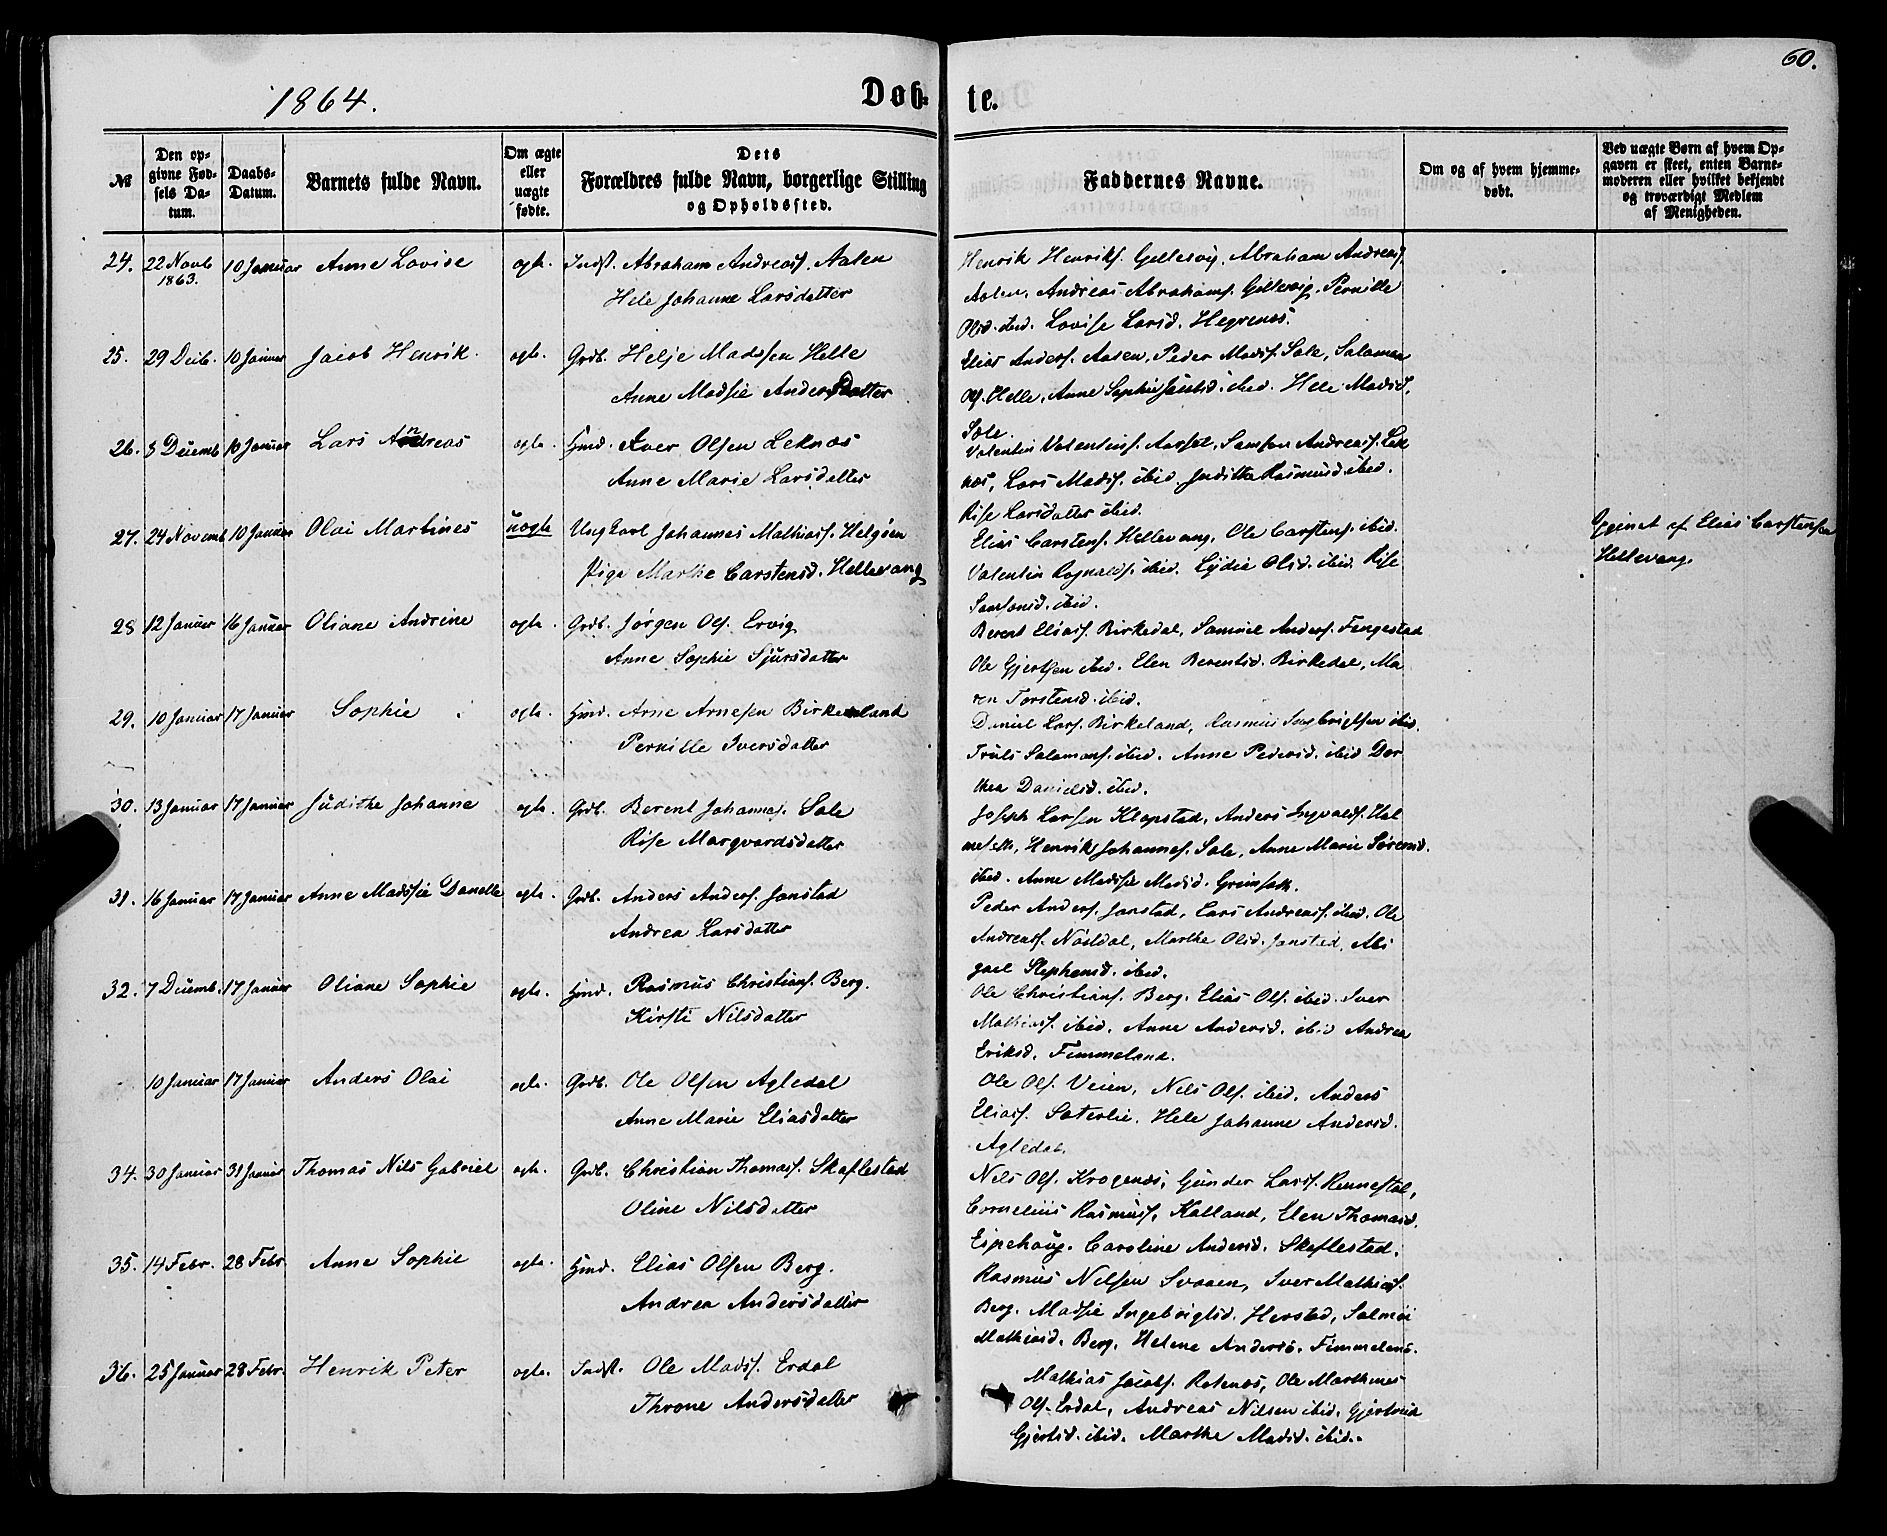 60.
1864.
Døb- te.
№
Den opgivne Fødsels Datum.
Daabs-Datum.
Barnets fulde Navn.
Om ægte eller uægte fødte.
Dets Forældres fulde Navn, borgerlige Stilling og Opholdssted.
Faddernes Navne.
Om og af hvem hjemmedøbt.
Ved uægte Børn af hvem Opgaven er skeet, enten Barnemoderen eller hvilket bekjendt og troværdigt Medlem af Menigheden.
24. 22 Novb 1863. 10 Januar Anne Lovise ægte. Indst. Abraham Andreass. Aalen
Hele Johanne Larsdatter
Henrik Henriks. Gellesvig, Abraham Andreass.
Aalen, Andreas Abrahams. Gillesvig, Pernille
Olsd. ibid. Lovise Larsd. Hegrenæs.
25. 29 Decb. 10 Januar Jacob Henrik. ægte. Grdb. Helje Madssen Helle
Anne Madsie Andersdatter
Elias Anders. Aasen, Peder Madss. Sole, Salamon
Ols. Helle, Anne Sophie Jacobsd. ibid. Hele Madsd.
Sole.
26. 5 Decemb 10 Januar Lars Andreas ægte. Hmd. Iver Olsen Leknæs
Anne Marie Larsdatter
Valentin Valentins. Aarset, Samson Andreass. Lek
næs, Lars Madss. ibid. Judithe Rasmusd. ibid.
Rise Larsdatter ibid.
27. 24 Novemb 10 Januar Olai Martines uægte Ungkarl Johannes Mathiass. Helgøen
Pige Marthe Carstensd. Hellevang
Elias Carstens. Hellevang, Ole Carstens. ibid.
Valentin Rognalds. ibid. Lydia Olsd. ibid. Rise
Samsonsd. ibid.
Opgivet af Elias Carstensen
Hellevang.
28 12 Januar 16 Januar Oliane Andrine ægte. Grdb. Jørgen Ols. Ervig
Anne Sophie Sjursdatter
Berent Eliass. Birkedal, Samuel Anders. Fængestad
Ole Gjertsen ibid. Elen Berentsd. Birkedal, Ma
ren Torstensd. ibid.
29. 10 Januar 17 Januar Sophie ægte. Hmd. Arne Arnesen Birkeland
Pernille Iversdatter
Daniel Lars. Birkeland, Rasmus Ingebrigtsen ibid.
Truls Salamons. ibid. Anne Pedersd. ibid Dor
thea Danielsd. ibid.
30. 13 Januar 17 Januar Judithe Johanne ægte. Grdb. Berent Johannes. Sole
Rise Marqvardsdatter
Joseph Larsen Klopstad, Anders Ingvalds. Hal
nesette, Henrik Johannes. Sole, Anne Marie Sørensd.
ibid. Anne Madsie Madsd. Grimsæth.
31. 16 Januar 17 Januar Anne Madssie Danelle ægte. Grdb. Anders Anders. Jonstad
Andrea Larsdatter
Peder Anders. Jonstad, Lars Andreass. ibid. Ole
Andreass. Nøsldal, Marthe Olsd. Jonstad, Abi
gael Stephensd. ibid.
32. 7 Decemb. 17 Januar Oliane Sophie ægte. Hmd. Rasmus Christians. Berg.
Kirsti Nilsdatter
Ole Christians. Berg. Elias Ols. ibid. Iver
Mathiass. ibid. Anne Andersd. ibid Andrea
Eriksd. Fimmeland.
10 Januar 17 Januar Anders Olai ægte. Grdb. Ole Olsen Agledal
Anne Marie Eliasdatter
Ole Ols. Veien, Nils Ols. ibid. Anders
Eliass. Sæterlie. Hele Johanne Andersd.
Agledal.
34. 30 Januar 31 Januar Thomas Nils Gabriel ægte. Grdb. Christian Thomass. Skaflestad
Oline Nilsdatter
Nils Ols. Krogenæs, Gunder Larss. Rennestøl,
Cornelius Rasmuss. Kalland, Elen Thomasd.
Espehoug. Caroline Andersd. Skaflestad.
35. 14 Febr. 28 Febr. Anne Sophie ægte. Hmd. Elias Olsen Berg.
Andrea Andersdatter
Rasmus Nilsen Svaaen, Iver Mathiass.
Berg. Madsie Ingebrigtsd. Herstad, Salmøi
Mathiasd. Berg. Helene Andersd. Fimmeland.
36. 25 Januar 28 Febr. Henrik Peter ægte. Indst. Ole Madss. Erdal
Throne Andersdatter
Mathias Jacobs. Rotenæs, Ole Marthinus
Ols. Erdal, Andreas Nilsen ibid. Gjertrud
Gjertsd. ibid. Marthe Madsd. ibid.